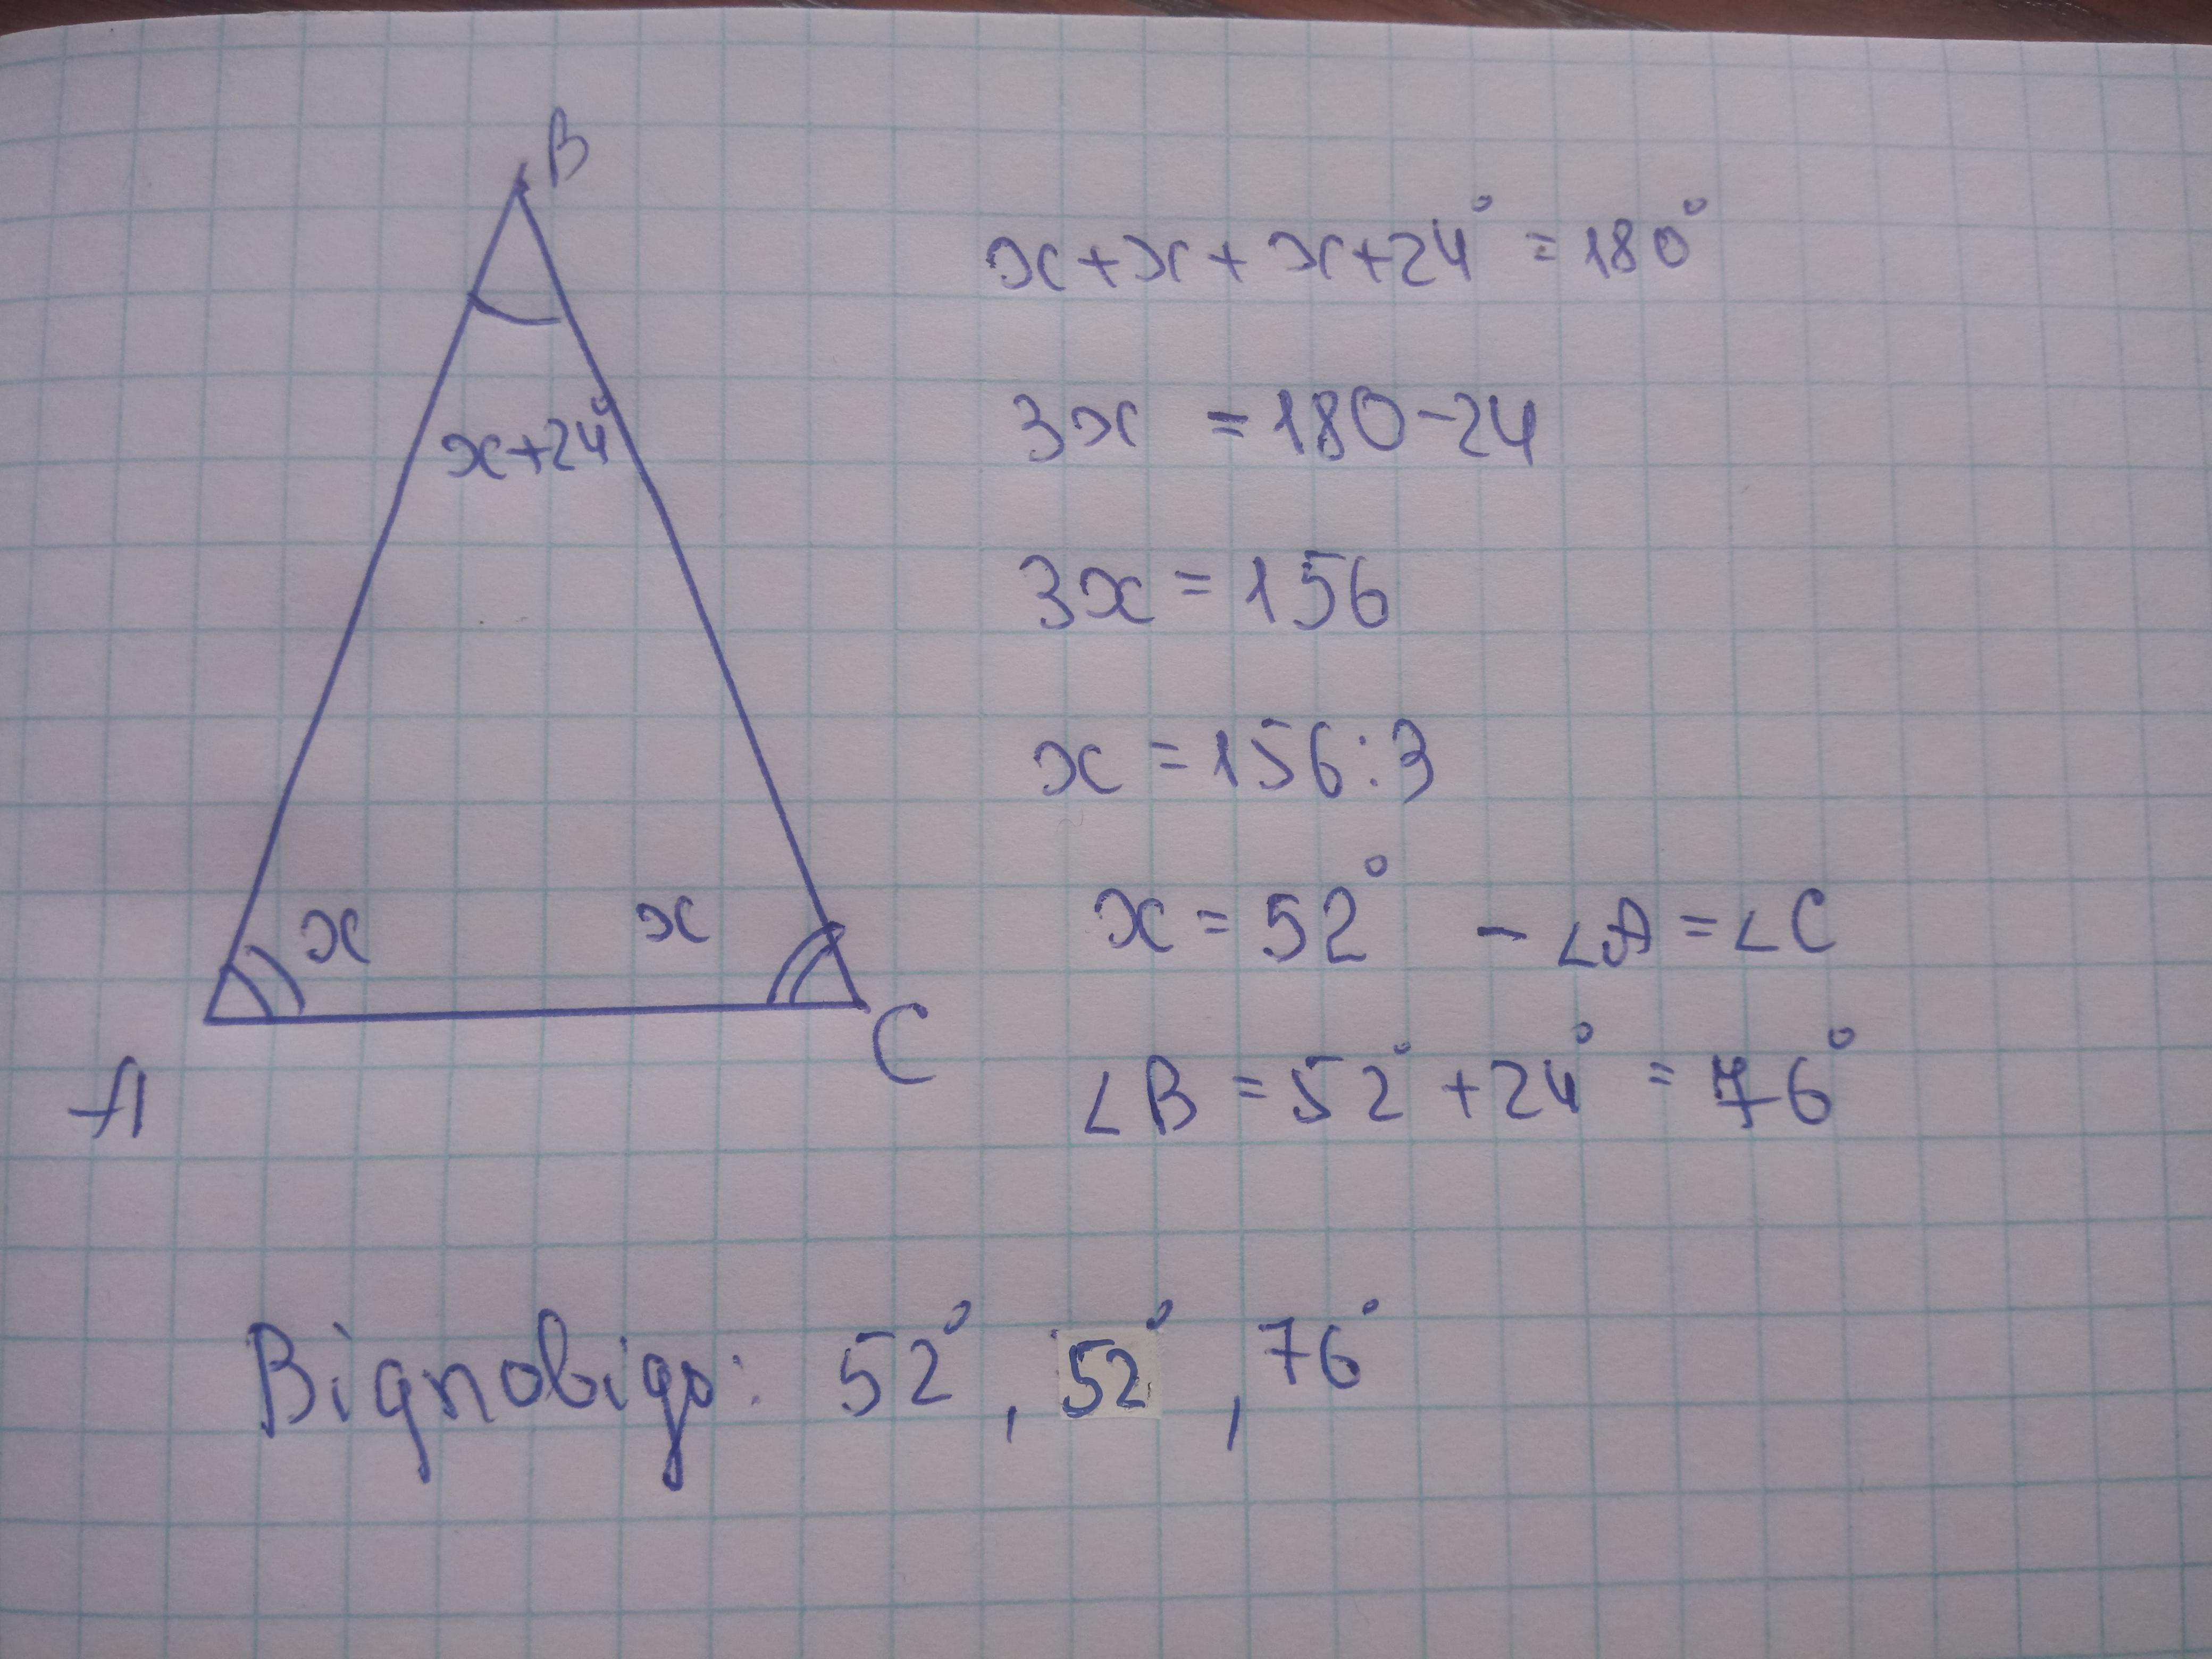 B
x+24°
x
x
A
C
x+x+x+24° = 180°
3x = 180-24
3x = 156
x = 156:3
x = 52° - ∠A = ∠C
∠B = 52° + 24° = 76°
Відповідь: 52°, 52°, 76°